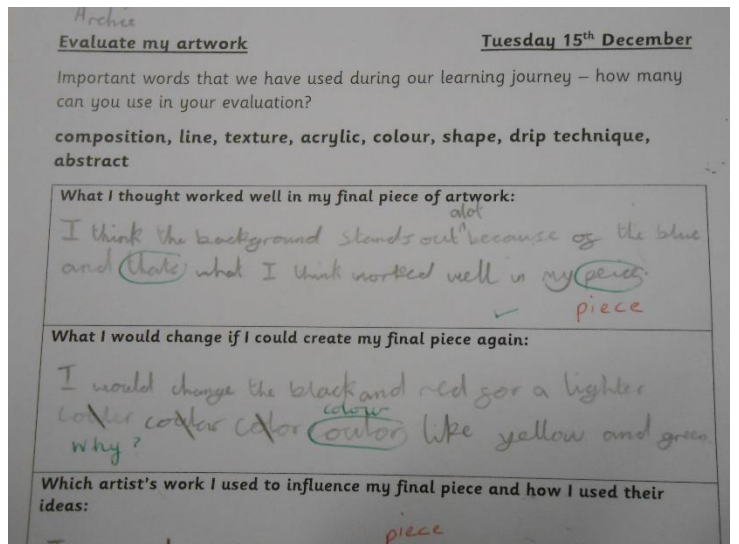 Archie
Evaluate my artwork Tuesday 15th December
Important words that we have used during our learning journey – how many
can you use in your evaluation?
composition, line, texture, acrylic, colour, shape, drip technique,
abstract
What I thought worked well in my final piece of artwork:
alot
I think the background stands out ^ because of the blue
and thats what I think worked well in my peice.
piece
What I would change if I could create my final piece again:
I would change the black and red for a lighter
colour
like yellow and green
why?
Which artist's work I used to influence my final piece and how I used their
ideas:
piece